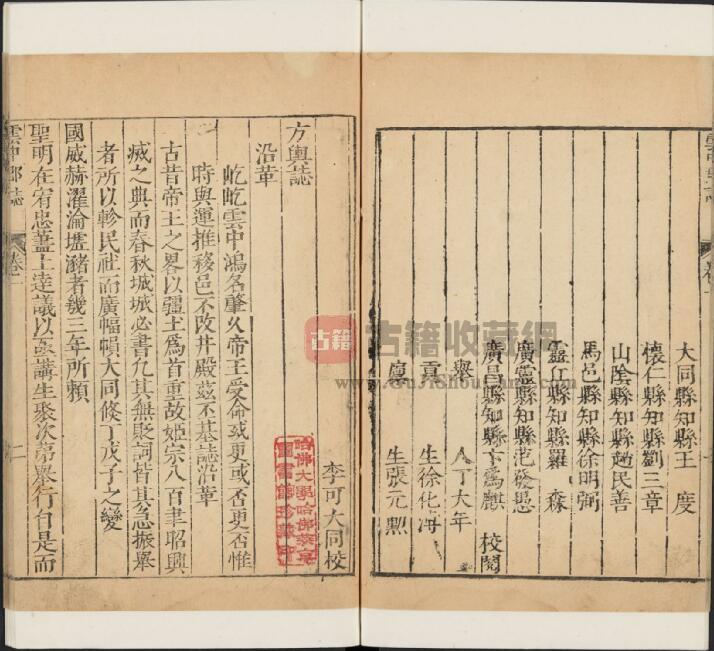 大同縣知縣王 度
懷仁縣知縣劉三章
山陰縣知縣趙民善
馬邑縣知縣徐明弼
靈丘縣知縣羅 森
廣靈縣知縣范發愚
廣昌縣知縣卞為麒 校閱
舉 人丁大年
貢 生徐化海
廩 生張元勲
李可大同校
方輿誌
沿革
屹屹雲中鴻名肇久帝王受命或更或否惟
時與運推移邑不改井殿茲丕基誌沿革
古昔帝王之畧以疆土為首重故姬宗八百聿昭興
滅之典而春秋城城必書允其無貶詞皆其急振舉
者所以軫民社而廣幅幀大同倏丁戊子之變
國威赫濯淪壚瀦者幾三年所頼
聖明在宥忠藎上達議以亟講生聚次第舉行自是而
雲中郡誌
卷一
二
古籍
古籍收藏網
www.GuJiShouCang.com
哈佛大學哈佛燕京
圖書館珍藏印